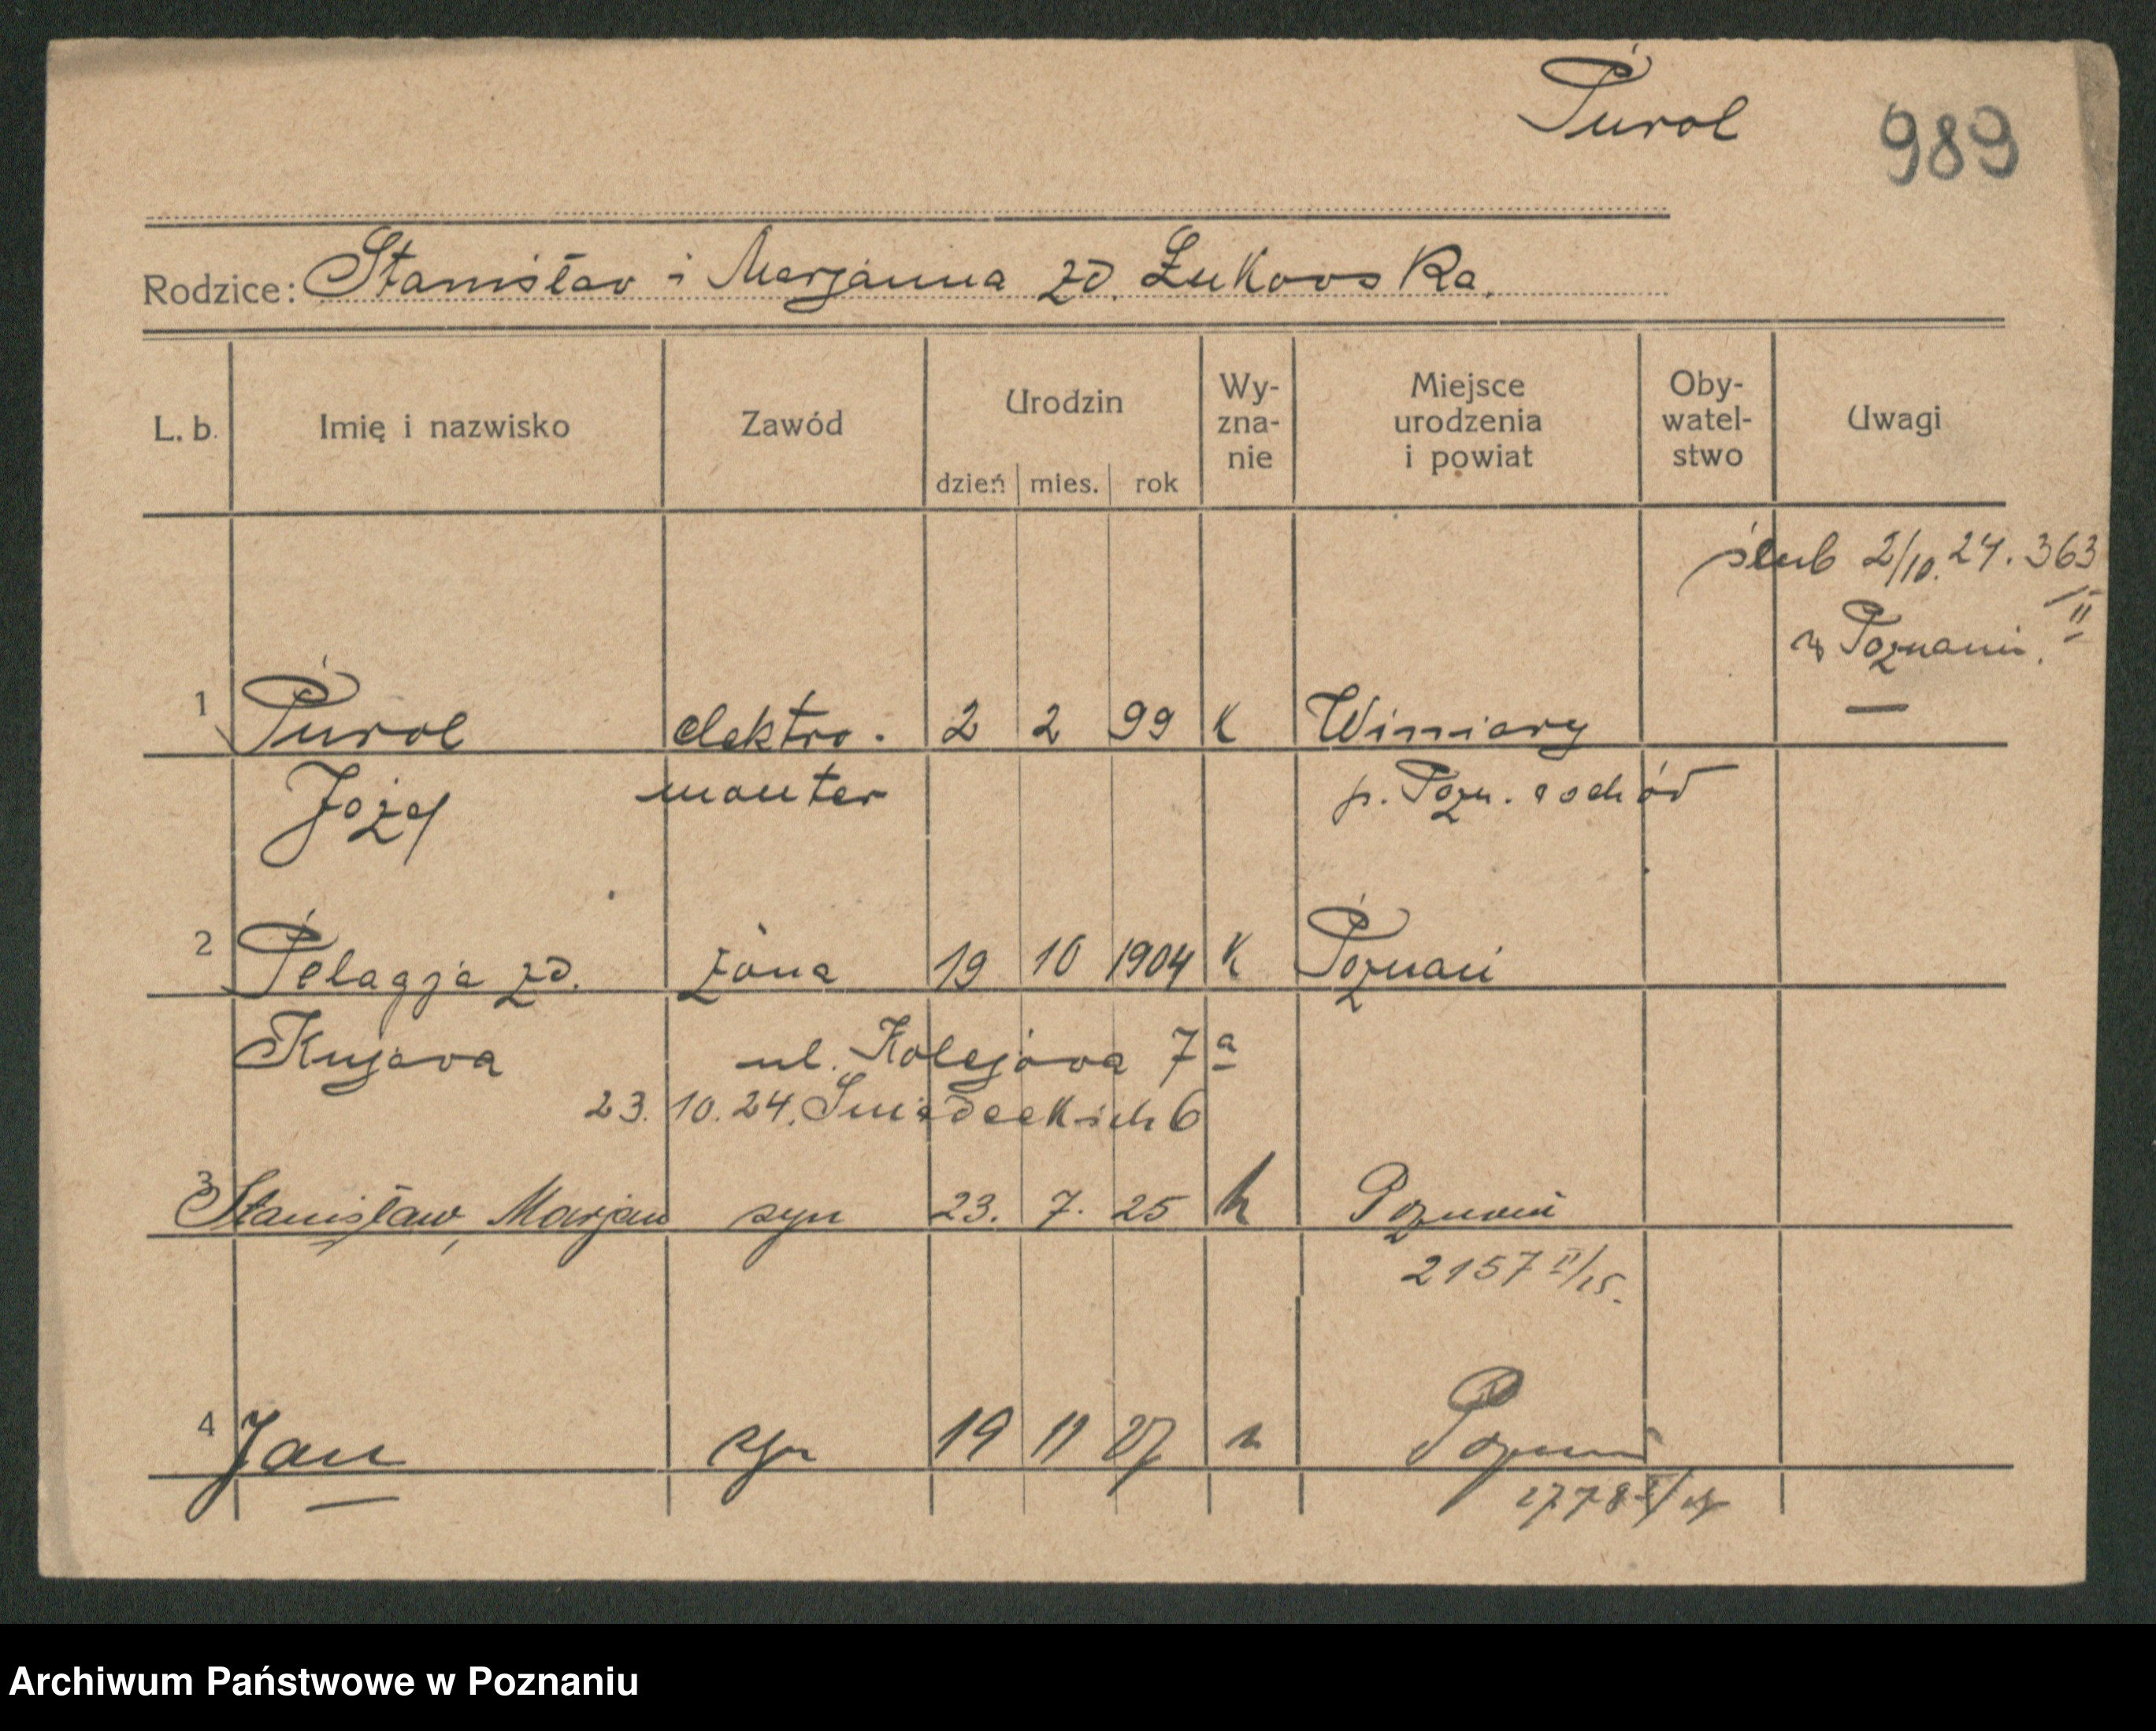 Purol
989
Rodzice: Stanisław i Marjanna zd. Żukowska.
L. b. Imię i nazwisko Zawód Urodzin Wy-zna-nie Miejsce urodzenia i powiat Oby-watel-stwo Uwagi
dzień mies. rok
ślub 2/10. 24. 363
II
w Poznaniu.
1 Purol elektro. 2 2 99 k Winiary
Józef monter p. Pozn. wschód
2 Pelagja zd. żona 19 10 1904 k Poznań
Kujawa ul. Kolejowa 7a
23. 10. 24. Śniadeckich 6
3 Stanisław, Marjan syn 23. 7. 25 k Poznań
2157 II/25.
4 Jan syn 19 11 27 k Poznań
2778
Archiwum Państwowe w Poznaniu